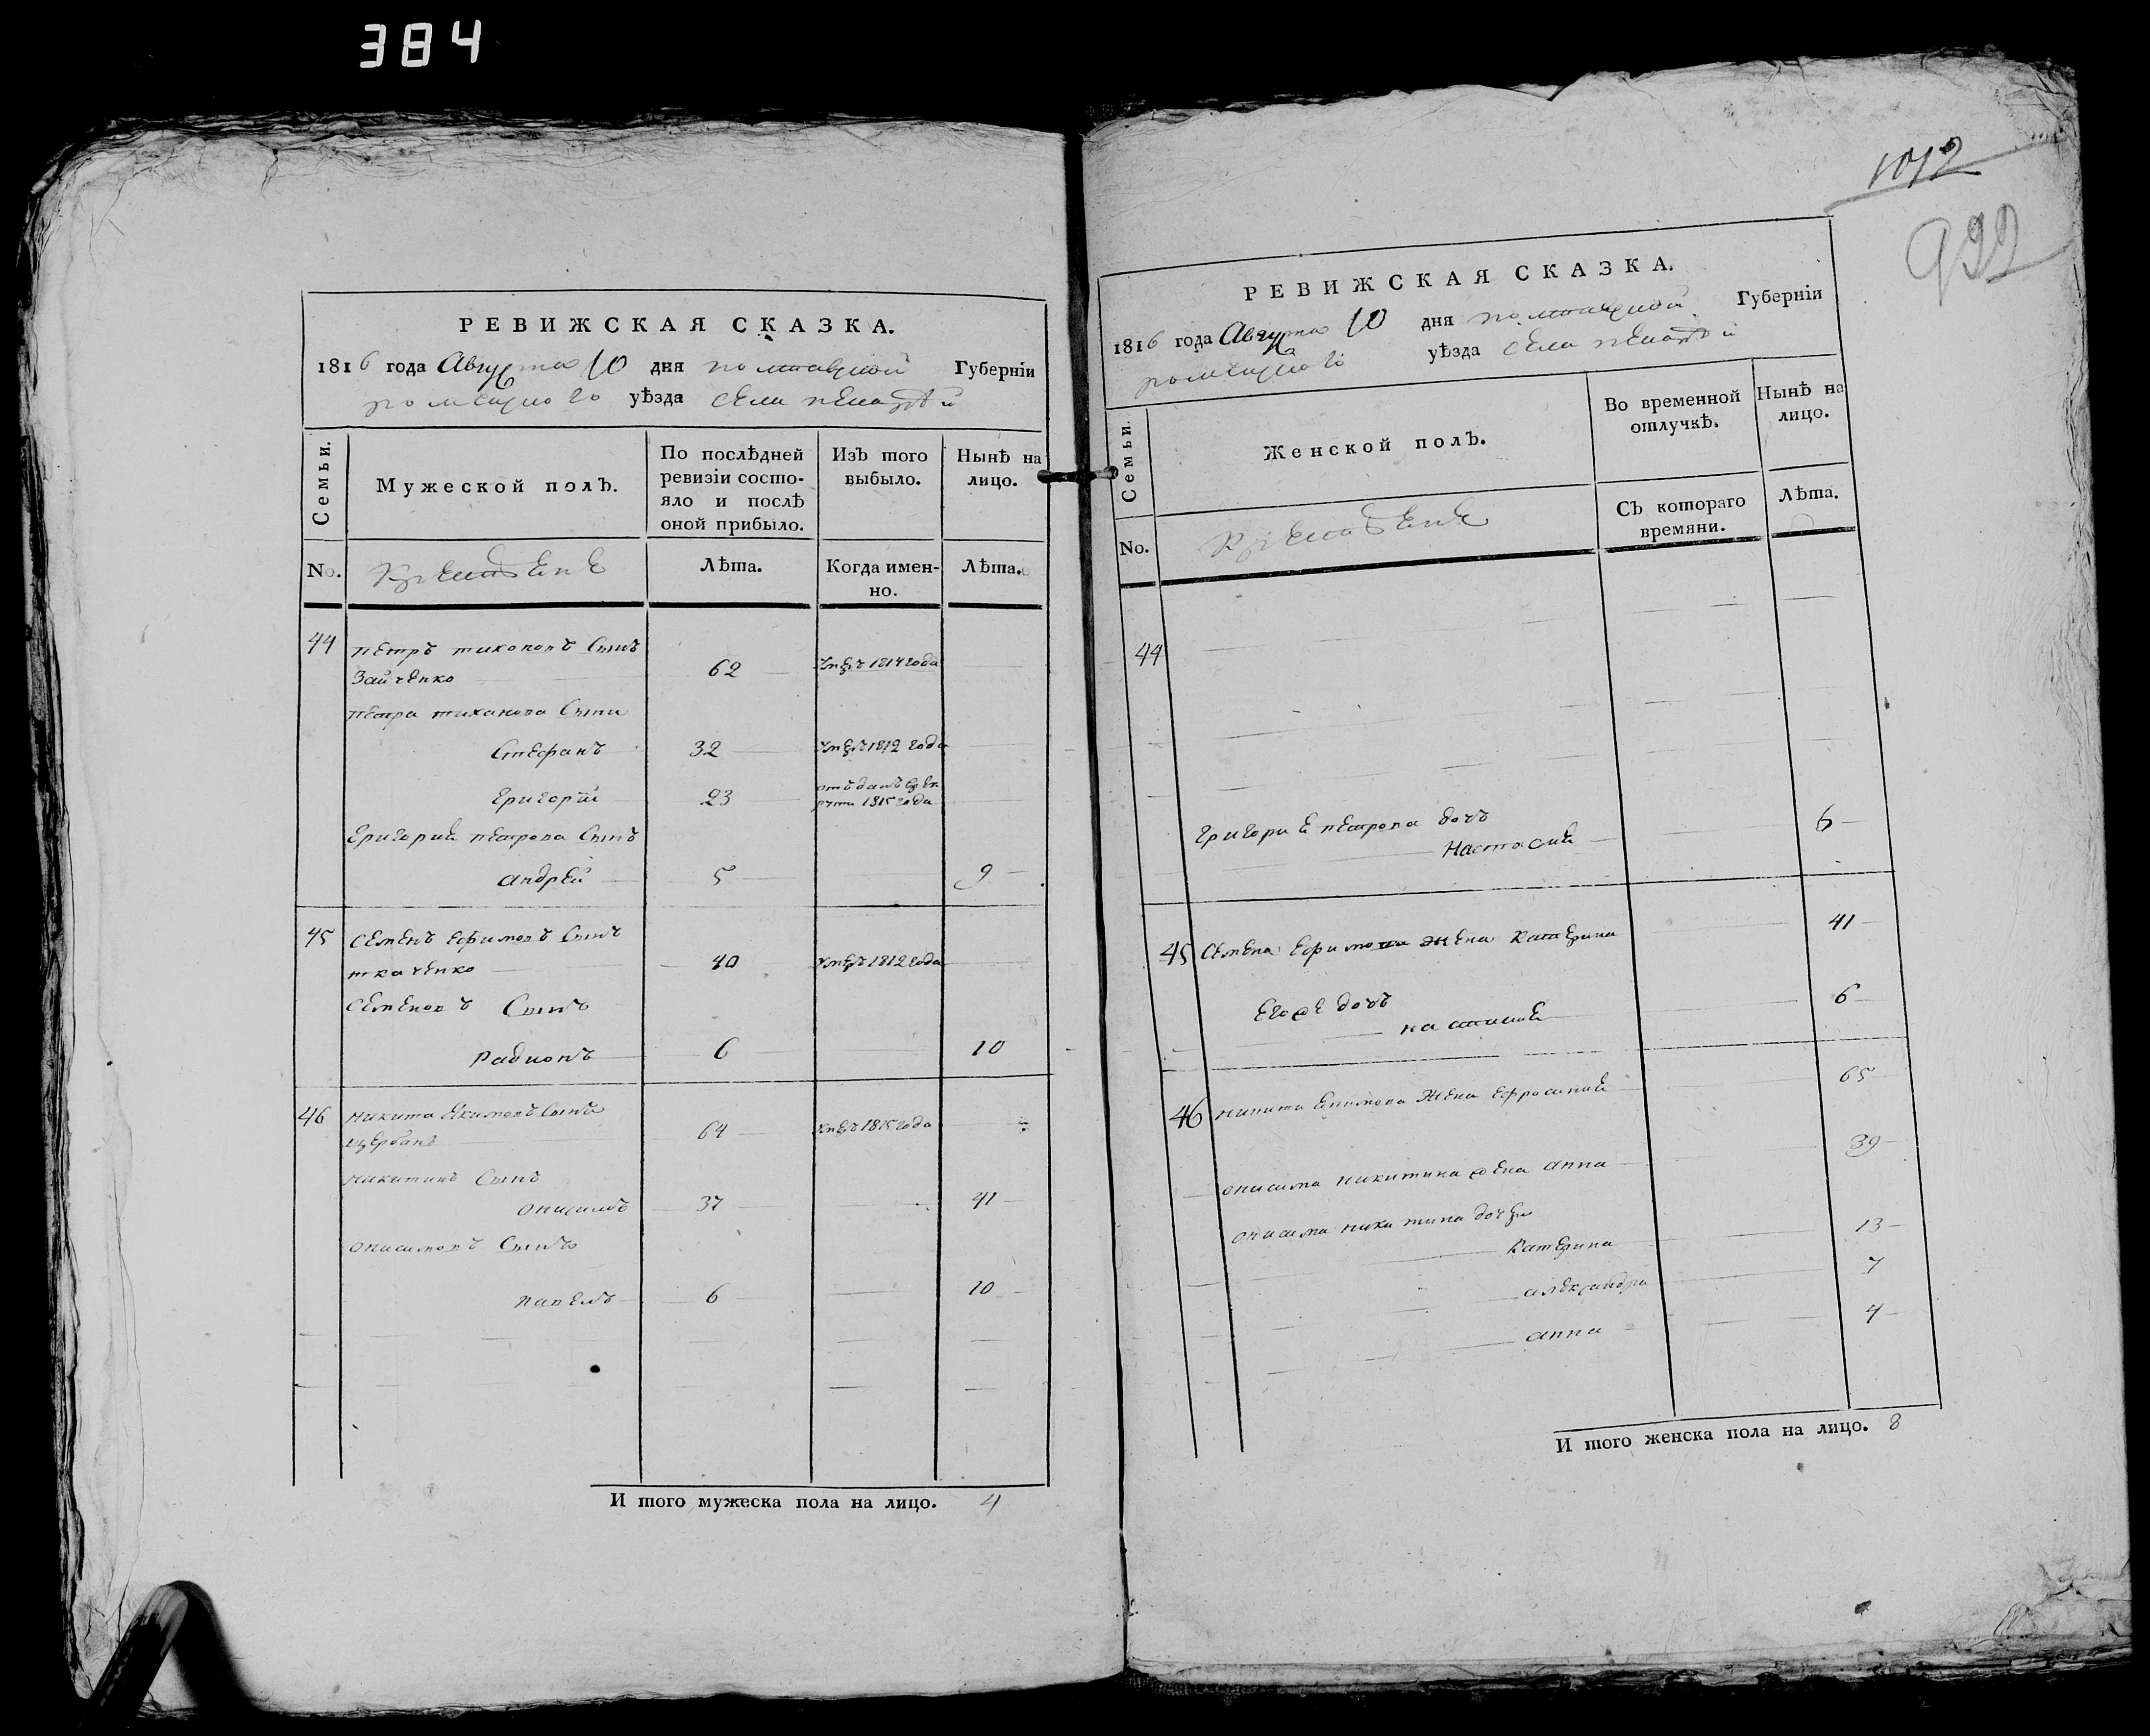 384
РЕВИЖСКАЯ СКАЗКА.
1816 года Августа 10 дня полтавской Губерніи
роменского уѣзда села
Семьи.
Мужеской полъ.
По послѣдней ревизіи состо-
яло и послѣ
оной прибыло.
Изъ того
выбыло.
Нынѣ на
лицо.
No.
Лѣта.
Когда имен-
но.
Лѣта.
44 петръ тихоновъ Сынъ
Зайченко 62 умеръ 1814 года
петра тиханова Сыни
Стефанъ 32 умеръ 1812 года
григорій 23 отъданъ врек
руты 1815 года
григория петрова Сынъ
андрей 5 9
45 семенъ ефимовъ Сынъ
ткаченко 40 умеръ 1812 года
семеновъ Сынъ
радионъ 6 10
46 никита екимовъ Сынъ
щербакъ 64 умеръ 1815 года
никитинъ Сынъ
онисимъ 37 41
онисимовъ Сынъ
павелъ 6 10
И того мужеска пола на лицо. 4
1012
992
РЕВИЖСКАЯ СКАЗКА.
1816 года Августа 10 дня полтавской Губерніи
роменского уѣзда села
Семьи.
Женской полъ.
Во временной
отлучкѣ.
Нынѣ на
лицо.
No.
Съ котораго
времяни.
Лѣта.
44
григория петрова дочъ
Настасия 6
45 семена ефимова жена катерина 41
его же дочъ
настасия 6
46 никиты екимова жена ефросиния 65
онисима никитина жена анна 39
онисима никитина дочери
катерина 13
александра 7
анна 4
И того женска пола на лицо. 8